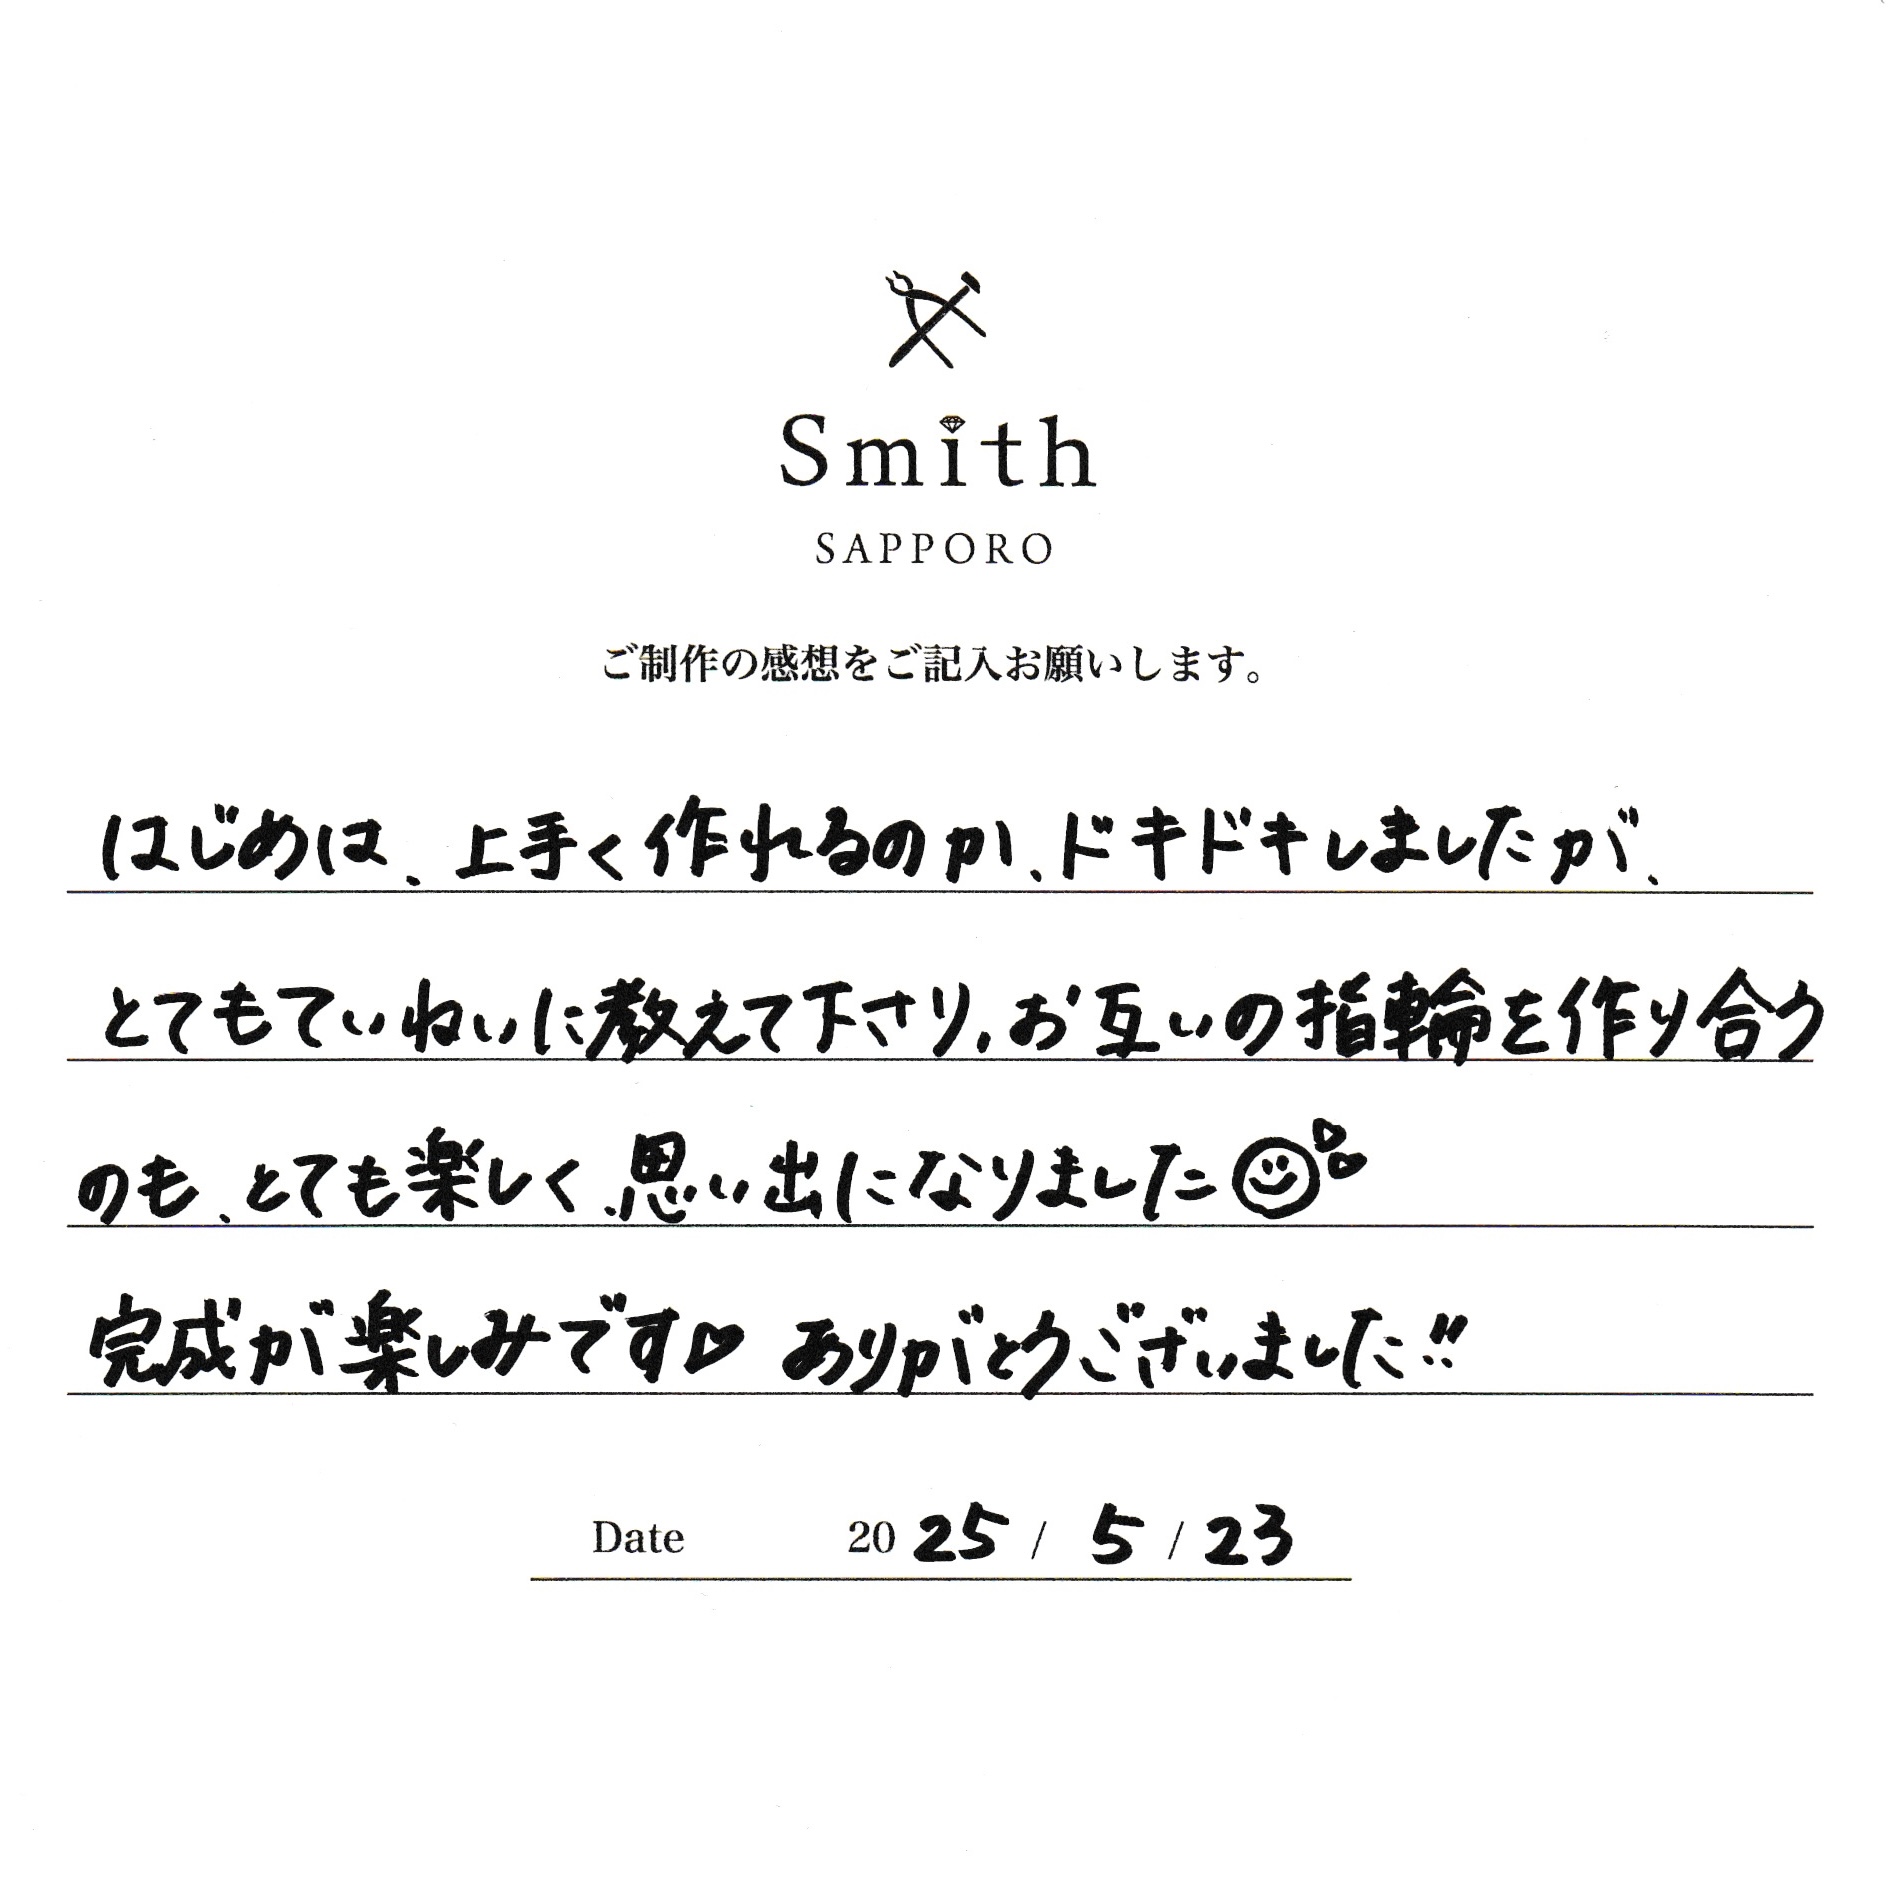 Smith
SAPPORO
ご制作の感想をご記入お願いします。
はじめは、上手く作れるのか、ドキドキしましたが、
とてもていねいに教えて下さり、お互いの指輪を作り合う
のも、とても楽しく、思い出になりました☺♡♡
完成が楽しみです♡ ありがとうございました!!
Date 2025 / 5 / 23